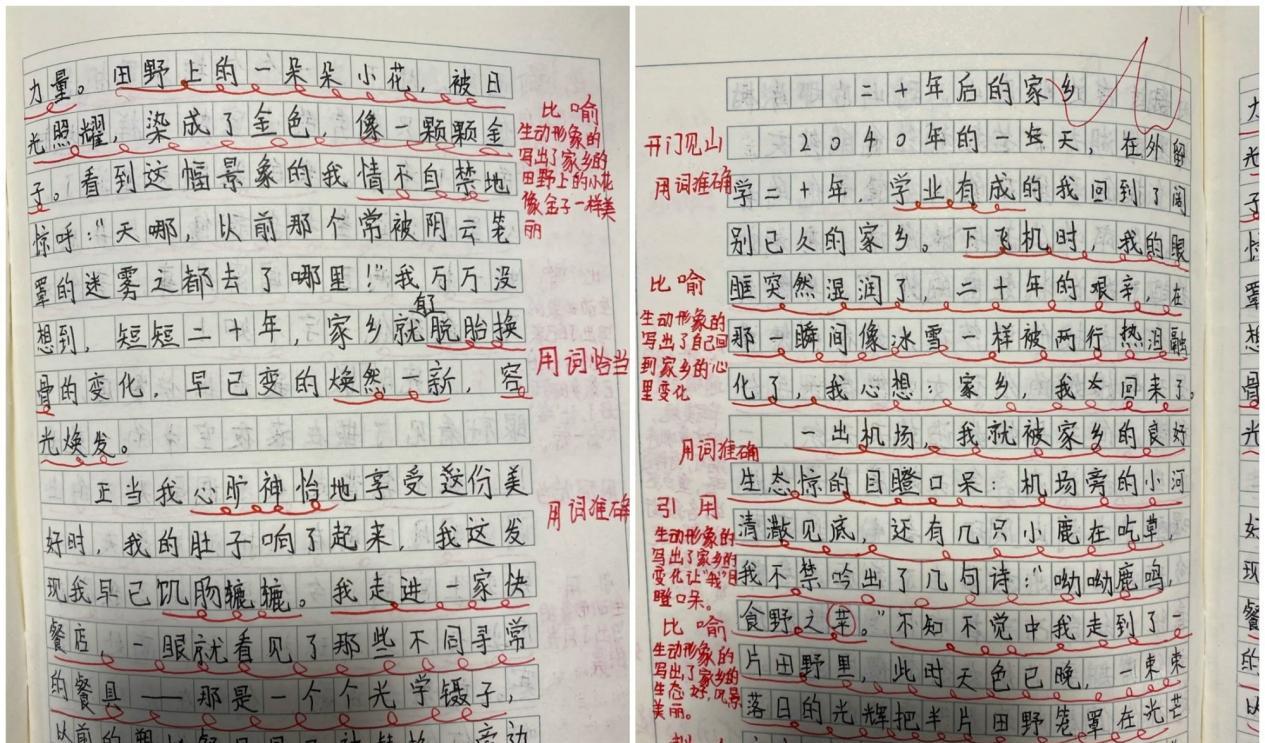 力量。田野上的一朵朵小花，被日
光照耀，染成了金色，像一颗颗金
子。看到这幅景象的我情不自禁地
惊呼："天哪，以前那个常被阴云笼
罩的迷雾之都去了哪里！"我万万没
想到，短短二十年，家乡就脱胎换
骨的变化，早已变的焕然一新，容
光焕发。
正当我心旷神怡地享受这份美
好时，我的肚子响了起来，我这发
现我早已饥肠辘辘。我走进一家快
餐店，一眼就看见了那些不同寻常
的餐具——那是一个个光学镊子，
以前的塑
比喻
生动形象的
写出了家乡的
田野上的小花
像金子一样美
丽
用词恰当
用词准确
二十年后的家乡
2040年的一天，在外留
学二十年，学业有成的我回到了阔
别已久的家乡。下飞机时，我的眼
眶突然湿润了，二十年的艰辛，在
那一瞬间像冰雪一样被两行热泪融
化了，我心想：家乡，我回来了。
一出机场，我就被家乡的良好
生态惊的目瞪口呆：机场旁的小河
清澈见底，还有几只小鹿在吃草，
我不禁吟出了几句诗："呦呦鹿鸣，
食野之苹。"不知不觉中我走到了一
片田野里，此时天色已晚，一束束
落日的光辉把半片田野笼罩在光芒
开门见山
用词准确
比喻
生动形象的
写出了自己回
到家乡的心
里变化
用词准确
引用
生动形象的
写出了家乡的
变化让"我"目
瞪口呆。
比喻
生动形象的
写出了家乡的
生态好，风景
美丽。